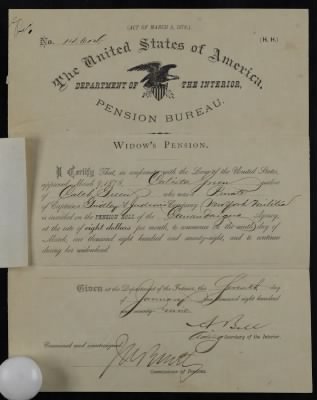 (ACT OF MARCH 9, 1878.)
No. (H. H.)
The United States of America,
DEPARTMENT OF THE INTERIOR,
PENSION BUREAU.
WIDOW'S PENSION.
I Certify That, in conformity with the Law of the United States,
approved March 9, 1878, Green widow
of Caleb Green who was a Private
of Captain Dudley & Judson's Company New York Militia
is inscribed on the PENSION ROLL of the Canandaigua Agency,
at the rate of eight dollars per month, to commence on the ninth day of
March, one thousand eight hundred and seventy-eight, and to continue
during her widowhood.
Given at the Department of the Interior, this Seventh day
of January one thousand eight hundred
and seventy-nine
A Bell
Acting Secretary of the Interior.
Examined and countersigned,
Commissioner of Pensions.